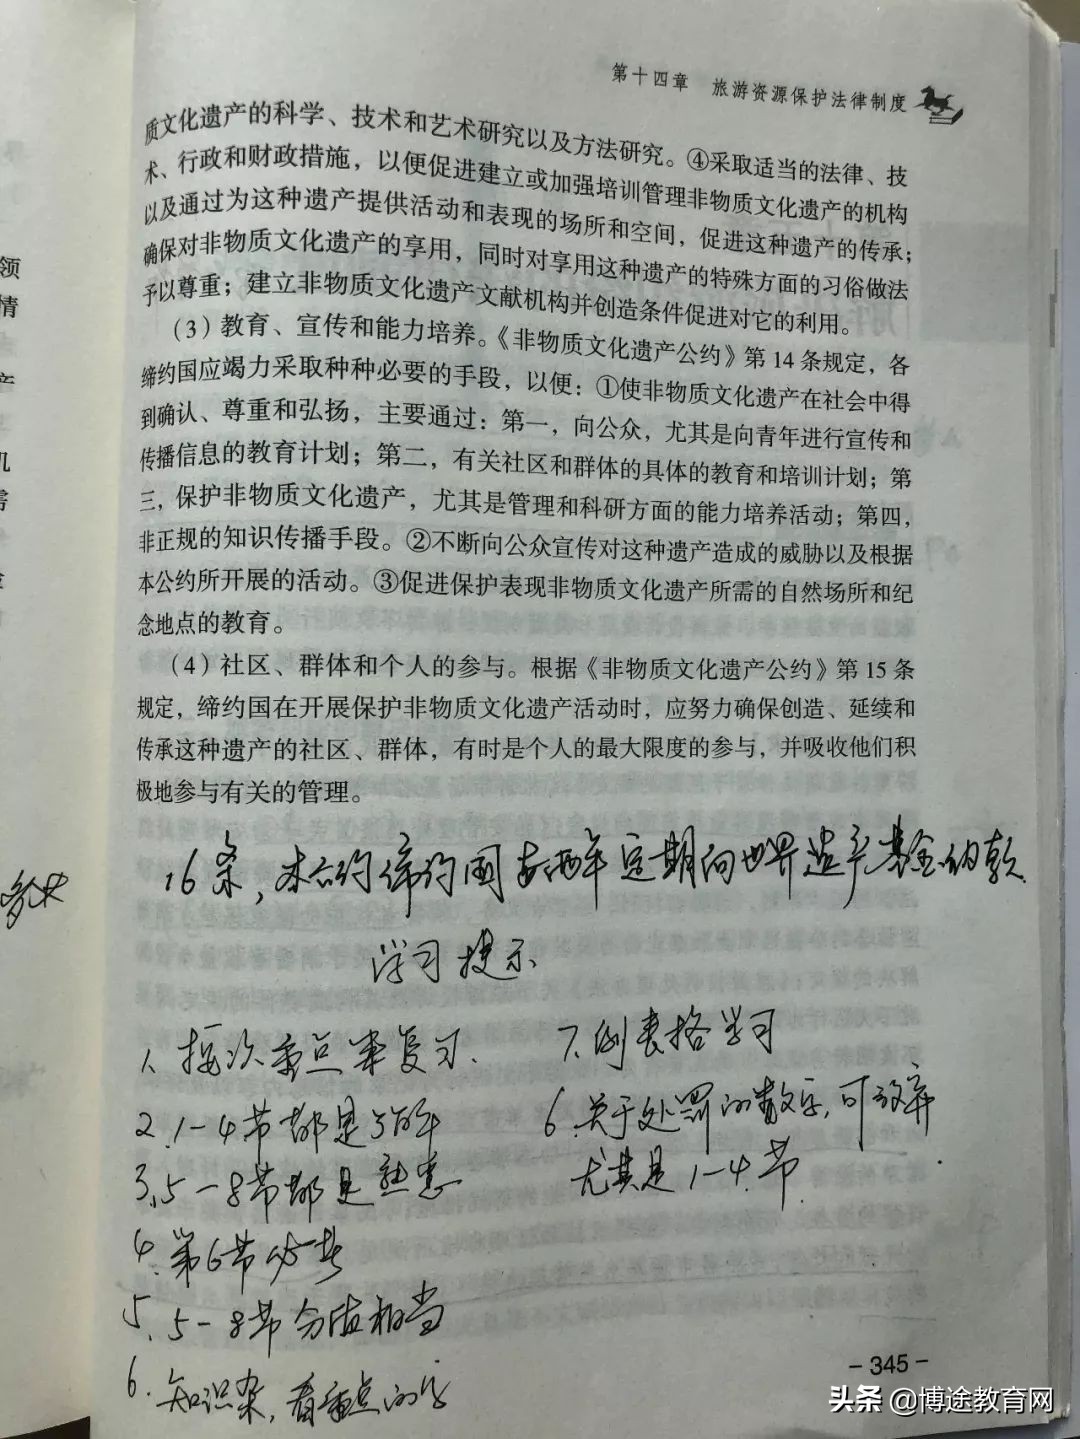 第十四章 旅游资源保护法律制度
质文化遗产的科学、技术和艺术研究以及方法研究。④采取适当的法律、技
术、行政和财政措施，以便促进建立或加强培训管理非物质文化遗产的机构
以及通过为这种遗产提供活动和表现的场所和空间，促进这种遗产的传承；
确保对非物质文化遗产的享用，同时对享用这种遗产的特殊方面的习俗做法
予以尊重；建立非物质文化遗产文献机构并创造条件促进对它的利用。
（3）教育、宣传和能力培养。《非物质文化遗产公约》第 14 条规定，各
缔约国应竭力采取种种必要的手段，以便：①使非物质文化遗产在社会中得
到确认、尊重和弘扬，主要通过：第一，向公众，尤其是向青年进行宣传和
传播信息的教育计划；第二，有关社区和群体的具体的教育和培训计划；第
三，保护非物质文化遗产，尤其是管理和科研方面的能力培养活动；第四，
非正规的知识传播手段。②不断向公众宣传对这种遗产造成的威胁以及根据
本公约所开展的活动。③促进保护表现非物质文化遗产所需的自然场所和纪
念地点的教育。
（4）社区、群体和个人的参与。根据《非物质文化遗产公约》第 15 条
规定，缔约国在开展保护非物质文化遗产活动时，应努力确保创造、延续和
传承这种遗产的社区、群体，有时是个人的最大限度的参与，并吸收他们积
极地参与有关的管理。
16条，本公约缔约国每两年定期向世界遗产基金纳款
学习提示
1. 按次重点来复习.
2. 1-4节都是了解
3. 5-8节都是熟悉
4. 第6节必考
5. 5-8节分值相当
6. 知识杂，看重点的学
7. 例表格学习
6. 关于处罚的数字，可放弃
尤其是1-4节.
-345-
领
情
产
头条 @博途教育网